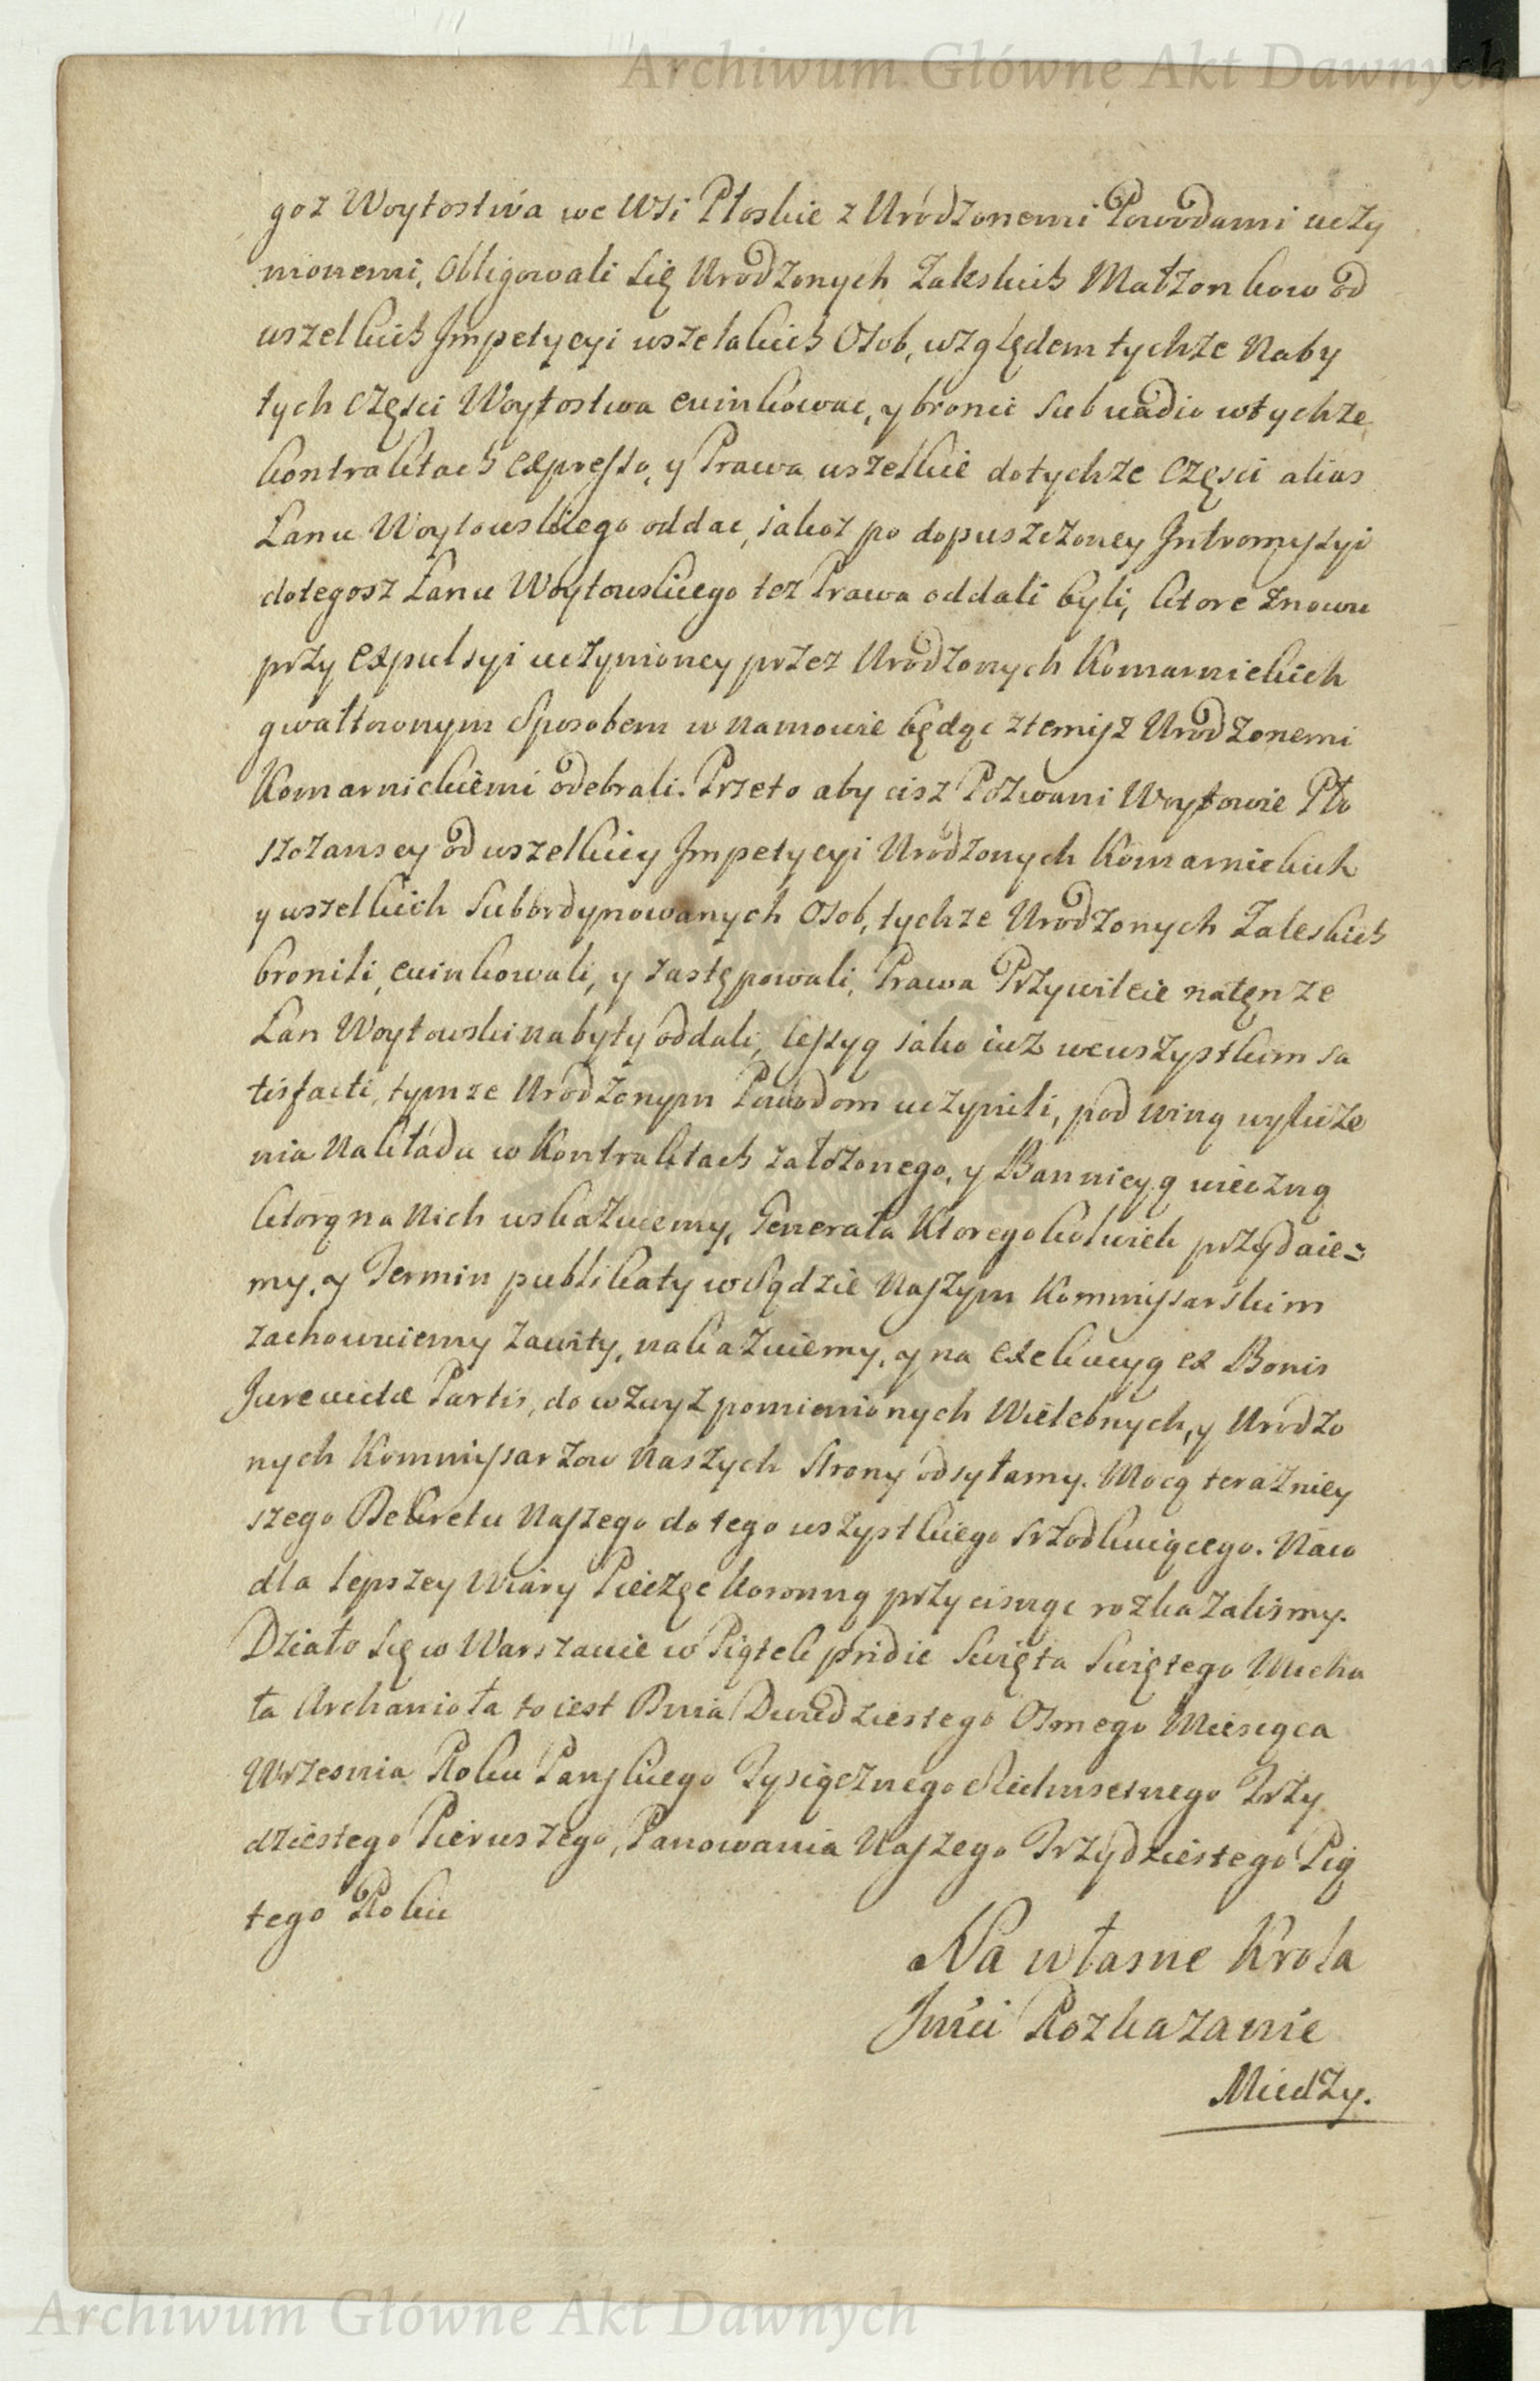 Archiwum Główne Akt Dawnych
goz Woytostwa we Wsi Płoskie z Urodzonemi Powodami uczy
nionemi, obligowali się Urodzonych Zaleskich Małzonkow od
wszelkich Jmpetycyi wszelakich Osob, względem tychze Naby
tych Części Woytostwa ewinkowac, y bronic sub vadio wtychze
kontraktach expresso, y Prawa wszelkie dotychze Części alias
Lanu Woytowskiego oddac, jakoz po dopuszczoney Jntromyssyi
dotegosz Lanu Woytowskiego tez Prawa oddali byli, ktore znowu
przy expulsyi uczynioney przez Urodzonych Komarnickich
gwałtownym Sposobem w namowie będąc ztemisz Urodzonemi
Komarnickiemi odebrali. Przeto aby cisz Pozwani Woytowie Pło
szczanscy od wszelkiey Jmpetycyi Urodzonych Komarnickich
y wszelkich Subordynowanych Osob, tychze Urodzonych Zaleskich
bronili, ewinkowali, y zastępowali, Prawa Przywileie natęnze
Lan Woytowski nabyty oddali, cessyą jako iuz wewszystkim sa
tisfacti, tymze Urodzonym Powodom uczynili, pod winą wyłicze
nia Nakładu w Kontraktach załozonego, y Bannicyą wieczną
ktorą na Nich wskazuiemy, Generała Ktoregokolwiek przydaie=
my, y Termin publikaty w Sądzie Naszym Kommissarskim
zachowuiemy zawity, nakazuiemy, y na exekucyą ex Bonis
Jurevictæ Partis, do wzwyz pomienionych Wielebnych, y Urodzo
nych Kommissarzow Naszych Strony odsyłamy. Mocą terazniey
szego Dekretu Naszego do tego wszystkiego srzodkuiącego. Naco
dla lepszey Wiary Pieczęc koronną przycisnąc rozkazalismy.
Działo się w Warszawie w Piątek pridie Swięta Swiętego Micha
ła Archanioła to iest Dnia Dwudziestego Osmego Miesiąca
Wrzesnia Roku Panskiego Tysiącznego Siedmsetnego Trzy
dziestego Pierwszego, Panowania Naszego Trzydziestego Pią
tego Roku
Na własne Krola
Jmci Rozkazanie
Miedzy.
Archiwum Główne Akt Dawnych